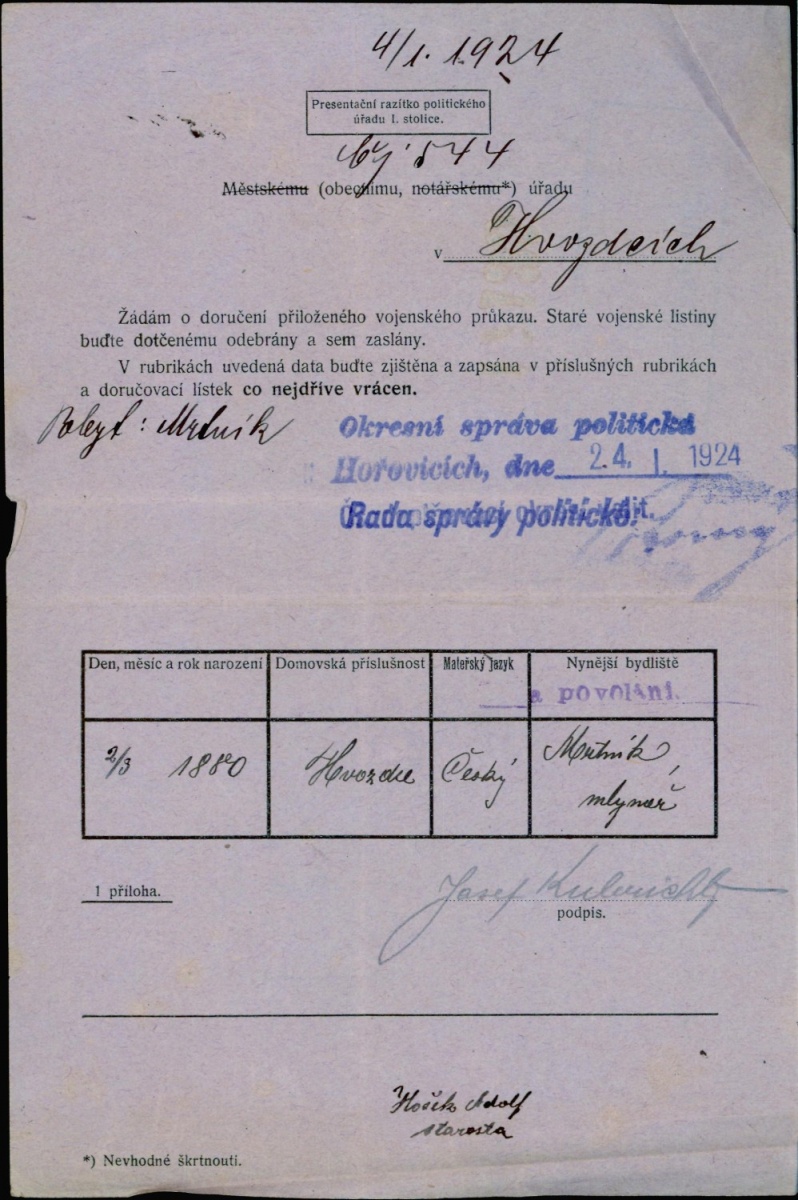 4/1. 1924
Presentační razítko politického
úřadu I. stolice.
čj 544
Městskému (obecnímu, notářskému*) úřadu
v Hvozdcích
Žádám o doručení přiloženého vojenského průkazu. Staré vojenské listiny
buďte dotčenému odebrány a sem zaslány.
V rubrikách uvedená data buďte zjištěna a zapsána v příslušných rubrikách
a doručovací lístek co nejdříve vrácen.
Pobyt : Mrtník
Okresní správa politická
Hořovicích, dne 24. I. 1924
Rada správy politické.
Den, měsíc a rok narození
Domovská příslušnost
Mateřský jazyk
Nynější bydliště
a povolání.
2/3 1880
Hvozdec
Český
Mrtník,
mlynář
1 příloha.
Josef
podpis.
Hošek Adolf
starosta
*) Nevhodné škrtnouti.